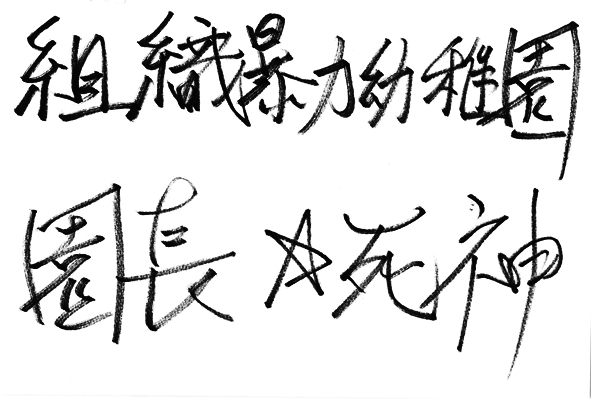 組織暴力幼稚園
園長☆死神